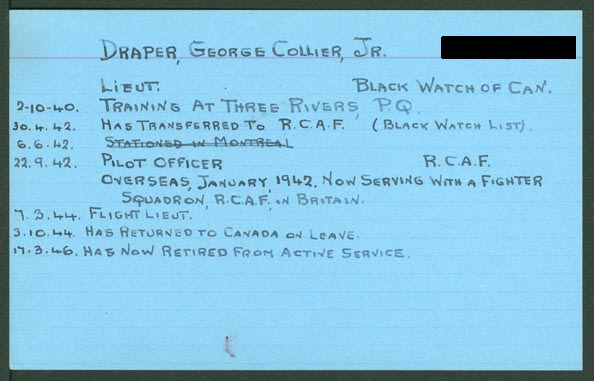 DRAPER, GEORGE COLLIER, JR.
LIEUT. BLACK WATCH OF CAN.
2-10-40. TRAINING AT THREE RIVERS, P.Q.
30.4.42. HAS TRANSFERRED TO R.C.A.F. (BLACK WATCH LIST).
6.6.42. STATIONED IN MONTREAL
22.9.42. PILOT OFFICER R.C.A.F.
OVERSEAS, JANUARY, 1942. NOW SERVING WITH A FIGHTER
SQUADRON, R.C.A.F. IN BRITAIN.
7.3.44. FLIGHT LIEUT.
3.10.44. HAS RETURNED TO CANADA ON LEAVE.
17.3.46. HAS NOW RETIRED FROM ACTIVE SERVICE.